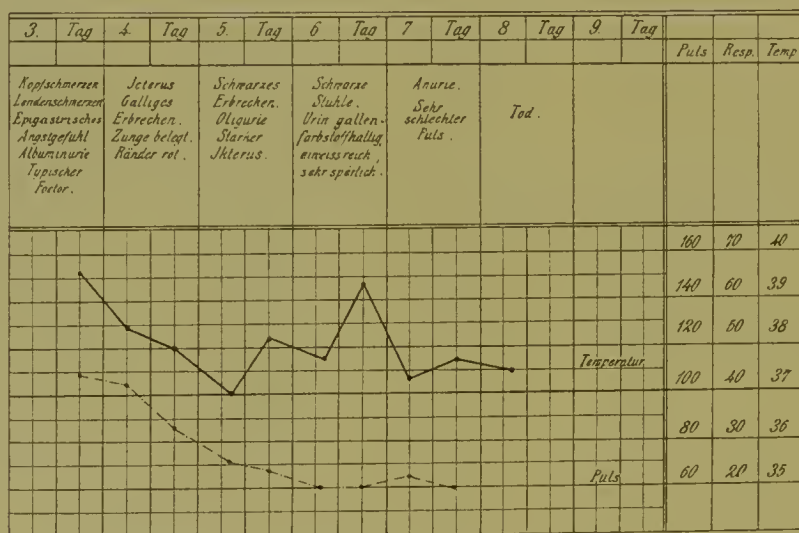 3. Tag 4. Tag 5. Tag 6 Tag 7 Tag 8 Tag 9. Tag
Puls Resp. Temp
Kopfschmerzen
Lendenschmerzen
Epigastrisches
Angstgefühl
Albuminurie
Typischer
Foetor.
Jcterus
Galliges
Erbrechen.
Zunge belegt.
Ränder rot.
Schwarzes
Erbrechen.
Oligurie
Starker
Jkterus.
Schwarze
Stühle.
Urin gallen-
farbstoffhaltig,
eiweissreich,
sehr spärlich.
Anurie.
Sehr
schlechter
Puls.
Tod.
160 70 40
140 60 39
120 50 38
Temperatur
100 40 37
80 30 36
Puls
60 20 35